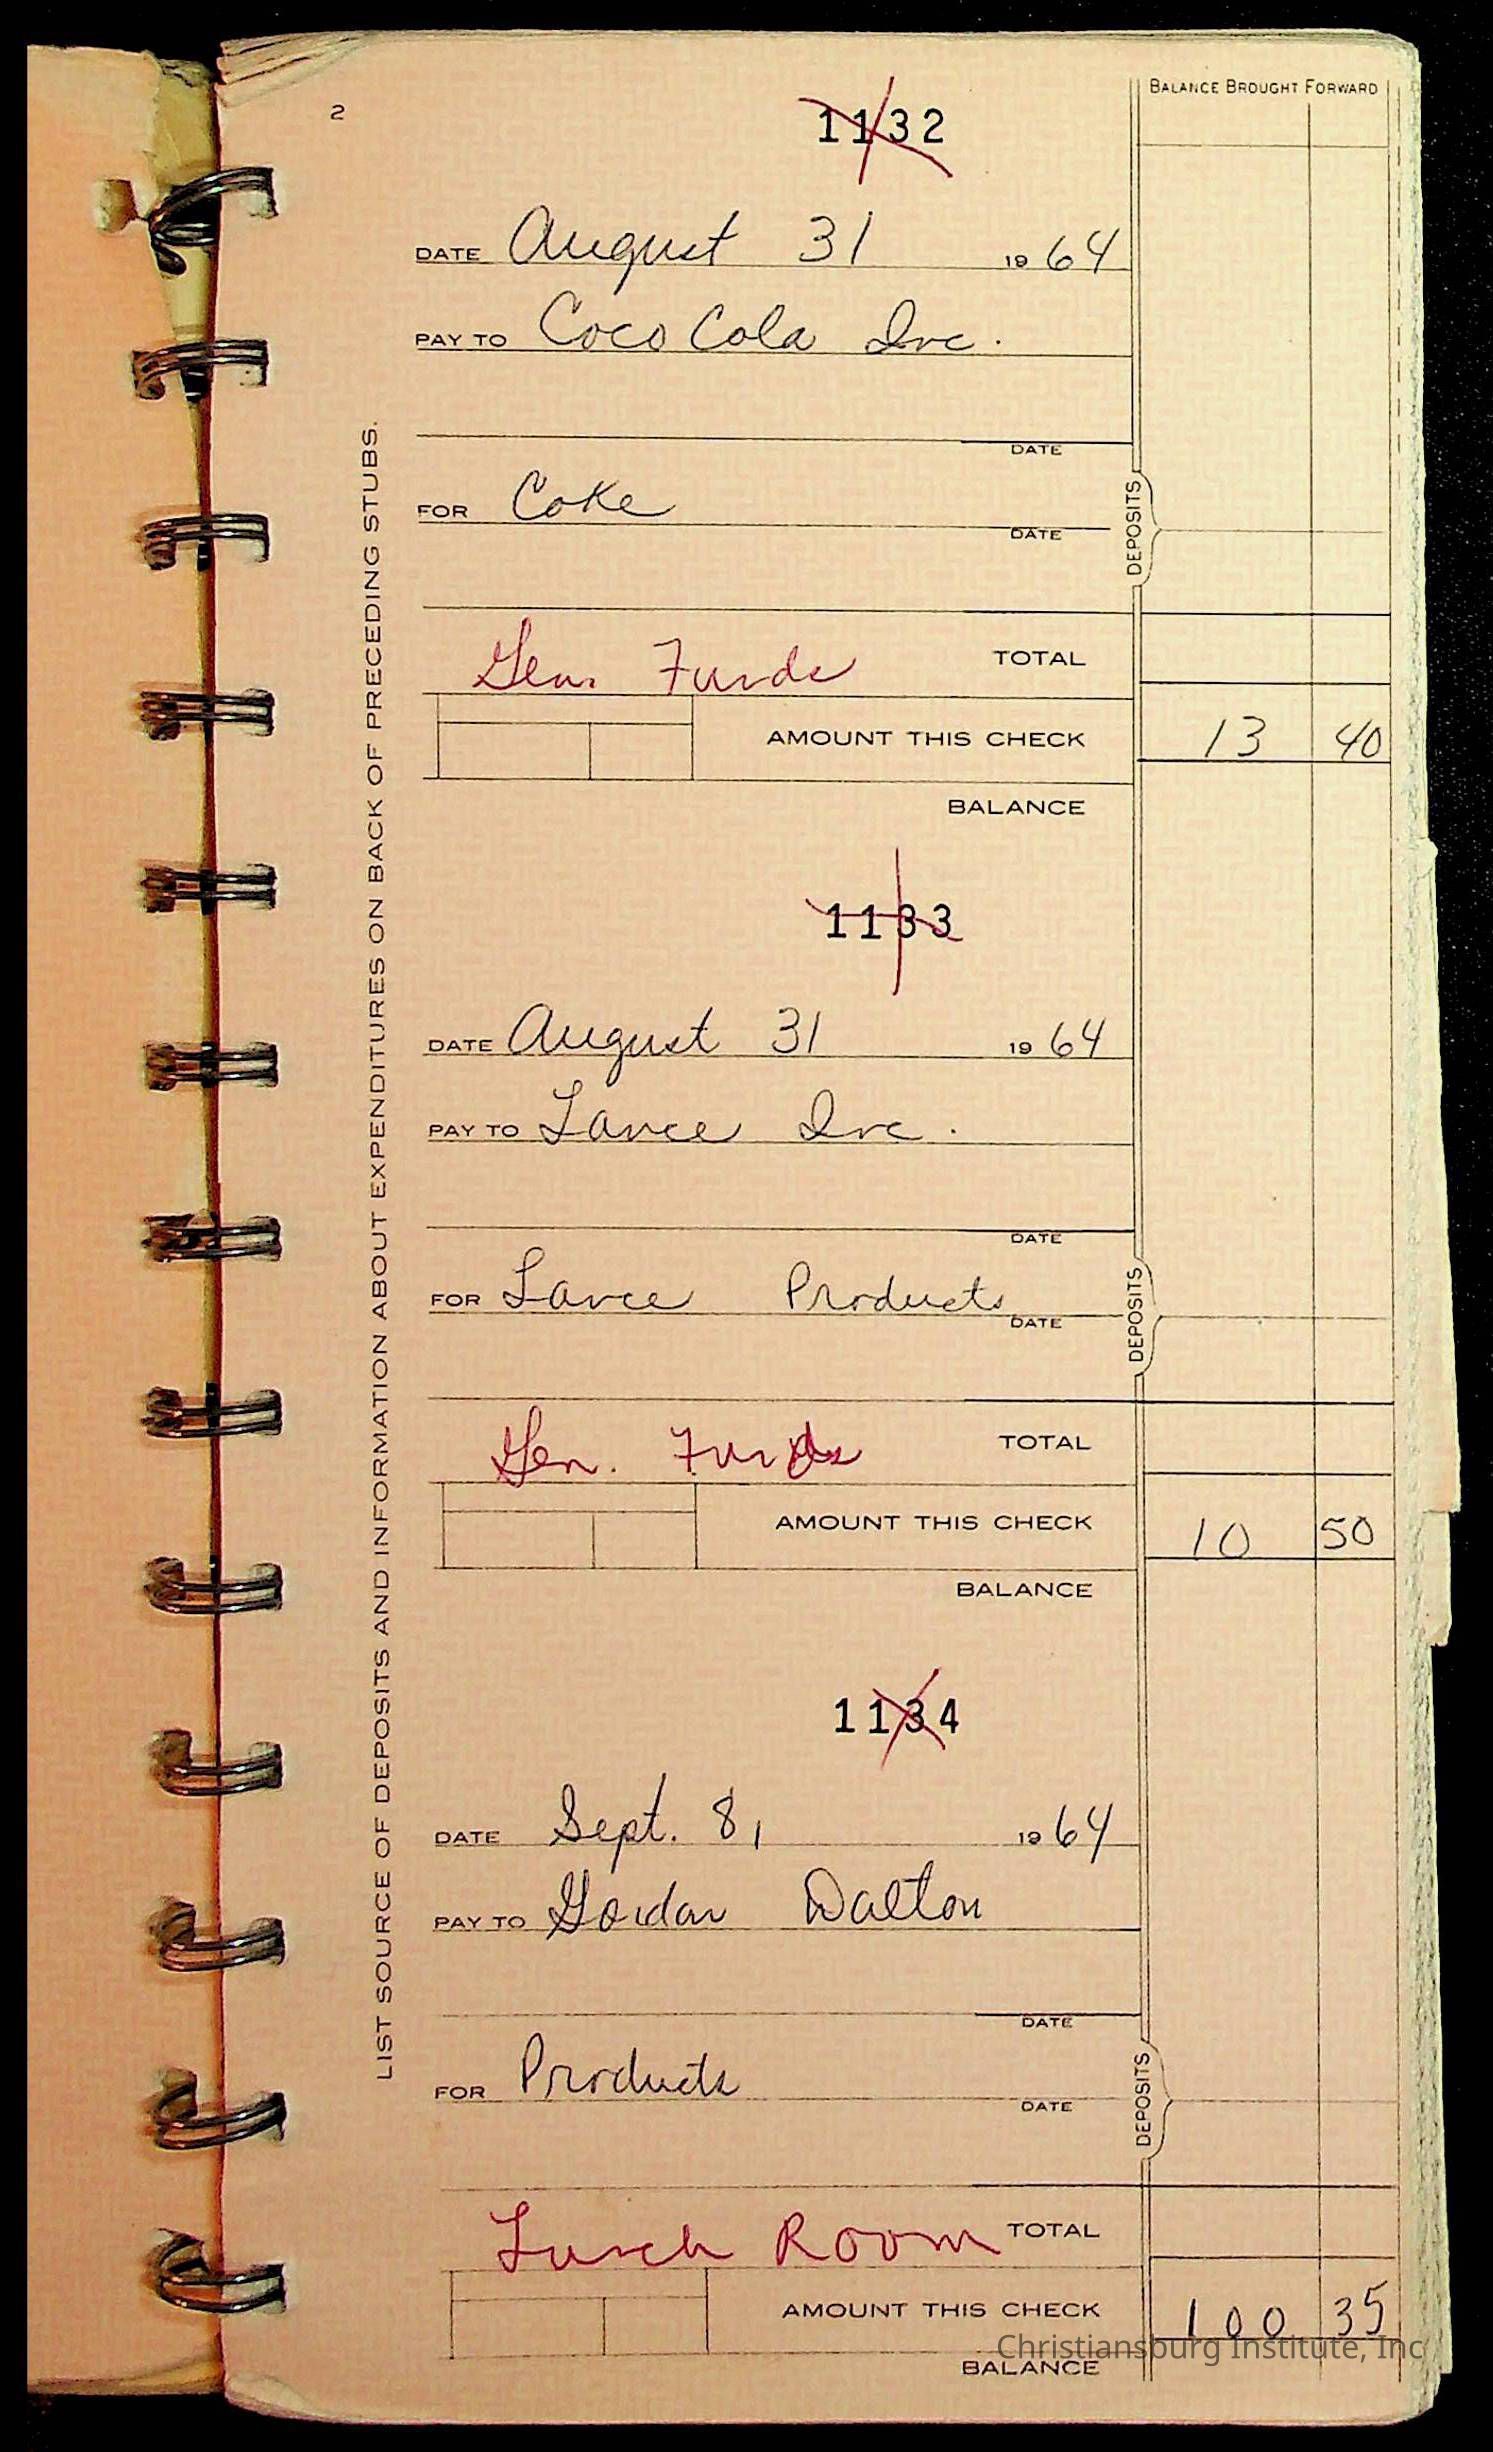 2
BALANCE BROUGHT FORWARD
1132
DATE August 31 19 64
PAY TO Coco Cola Inc.
DATE
FOR Coke
DATE
DEPOSITS
Gen. Funds TOTAL
AMOUNT THIS CHECK 13 40
BALANCE
1133
DATE August 31 19 64
PAY TO Lance Inc.
DATE
FOR Lance Products
DATE
DEPOSITS
Gen. Funds TOTAL
AMOUNT THIS CHECK 10 50
BALANCE
1134
DATE Sept. 8, 19 64
PAY TO Gordan Dalton
DATE
FOR Products
DATE
DEPOSITS
Lunch Room TOTAL
AMOUNT THIS CHECK 100 35
BALANCE
LIST SOURCE OF DEPOSITS AND INFORMATION ABOUT EXPENDITURES ON BACK OF PRECEDING STUBS.
Christiansburg Institute, Inc